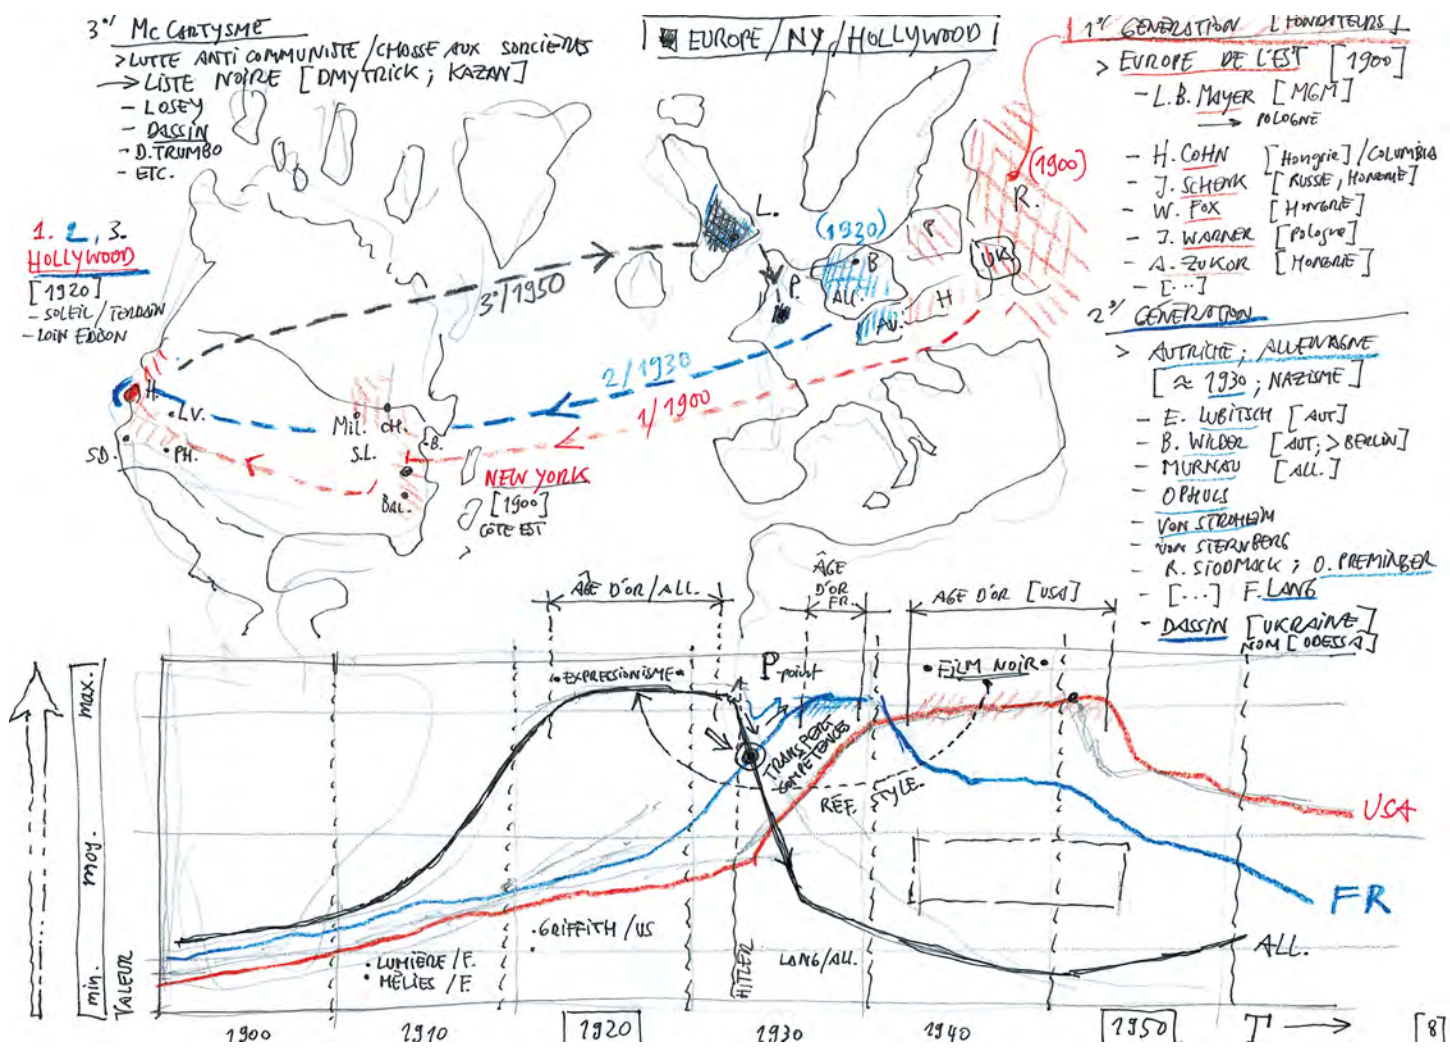 3°/ MC CARTYSME
> LUTTE ANTI COMMUNISTE / CHASSE AUX SORCIÈRES
→ LISTE NOIRE [DMYTRICK ; KAZAN]
- LOSEY
- DASSIN
- D. TRUMBO
- ETC.
EUROPE / NY / HOLLYWOOD
1°/ GENERATION [FONDATEURS]
> EUROPE DE L'EST [1900]
- L.B. MAYER [MGM]
→ POLOGNE
- H. COHN [Hongrie] / COLUMBIA
- J. SCHENK [RUSSE, HONGRIE]
- W. FOX [HONGRIE]
- J. WARNER [Pologne]
- A. ZUKOR [HONGRIE]
- [...]
2°/ GÉNÉRATION
> AUTRICHE ; ALLEMAGNE
[≈ 1930 ; NAZISME]
- E. LUBITSCH [AUT]
- B. WILDER [AUT ; > BERLIN]
- MURNAU [ALL.]
- OPHULS
- VON STROHEIM
- VON STERNBERG
- R. SIODMACK ; O. PREMINGER
- [...] F. LANG
- DASSIN [UKRAINE]
NOM [ODESSA]
1. 2, 3.
HOLLYWOOD
[1920]
- SOLEIL / TERRAIN
- LOIN EDISON
3°/1950
2/1930
1/1900
L.
P.
(1920)
B
ALL.
AU.
P
H
UK
R.
(1900)
H.
L.V.
S.D.
PH.
MIL.
CH.
S.L.
B.
BAL.
NEW YORK
[1900]
CÔTE EST
>
ÂGE D'OR / ALL.
ÂGE
D'OR
FR.
AGE D'OR [USA]
• EXPRESSIONISME •
P-point
• FILM NOIR •
TRANSFERT
COMPÉTENCES
REF. STYLE.
USA
FR
ALL.
max.
moy.
min.
VALEUR
• LUMIÈRE / F.
• MÉLIÈS / F.
• GRIFFITH / US
HITLER
LANG / ALL.
1900
1910
1920
1930
1940
1950
T →
[8]